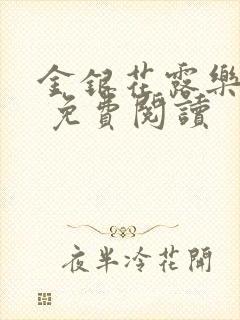 金銀花露樂
免費閱讀
夜半冷花開